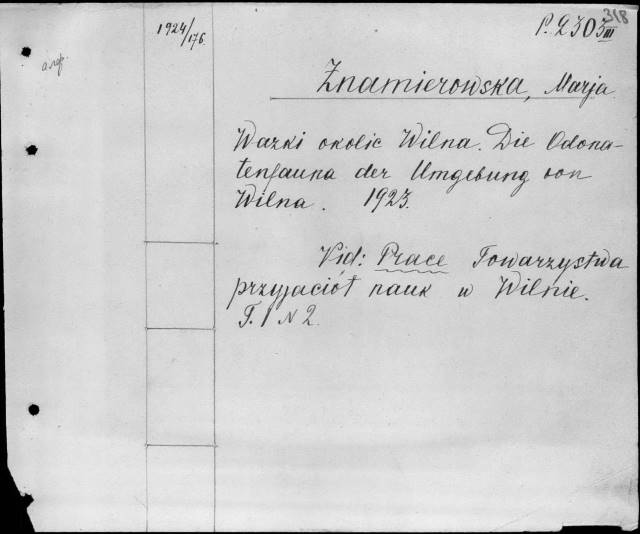 318
P. 2303 III
1924/176.
алф.
Znamierowska, Marja
Wazki okolic Wilna. Die Odona-
tenfauna der Umgebung von
Wilna. 1923.
Vid: Prace Towarzystwa
przyjaciół nauk w Wilnie.
T. 1 N 2.